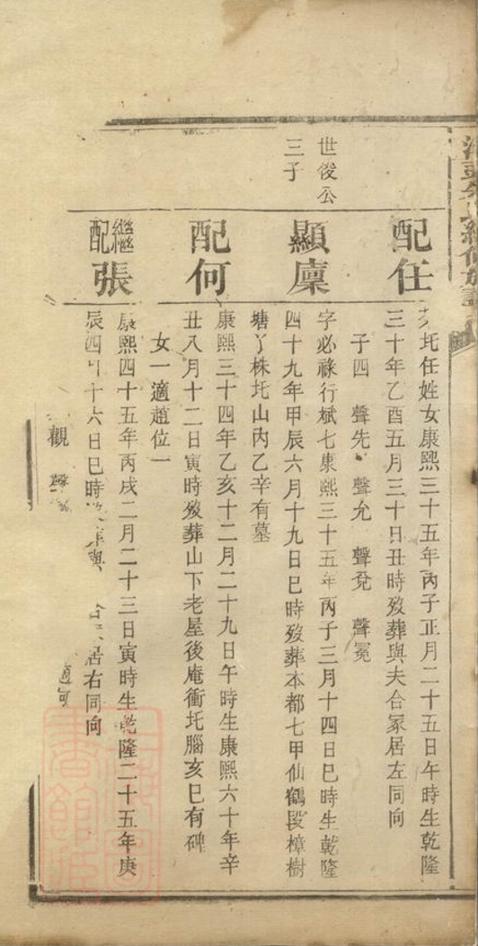 配任
圫任姓女康熙三十五年丙子正月二十五日午時生乾隆
三十年乙酉五月三十日丑時歿葬與夫合冢居左同向
子四 聲先 聲允 聲兊 聲冕
世俊公
三子
顯廩
字必祿行斌七康熙三十五年丙子三月十四日巳時生乾隆
四十九年甲辰六月十九日巳時歿葬本都七甲仙鶴段樟樹
塘丫株圫山內乙辛有墓
配何
康熙三十四年乙亥十二月二十九日午時生康熙六十年辛
丑八月十二日寅時歿葬山下老屋後庵衝圫腦亥巳有碑
女一適趙位一
繼配張
康熙四十五年丙戌二月二十三日寅時生乾隆二十五年庚
辰四月十六日巳時 居右同向
觀聲
適